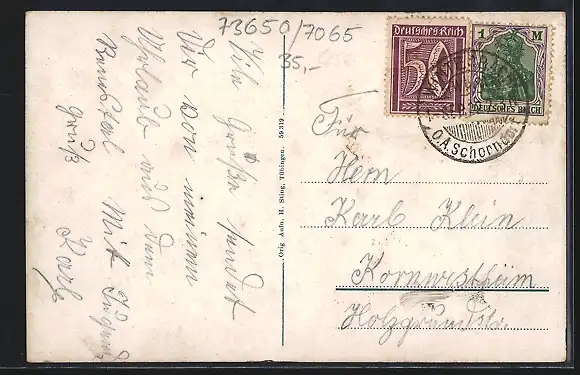 73650/7065
35,-
Deutsches Reich
50
1 M
DEUTSCHES REICH
O.A. Schorndorf
Viele Grüße sendet
Dir von meinem
Urlaub aus dem
Remstal Mit
gruß Karl
Orig. Aufn. H. Sting, Tübingen. 59319
Für
Herrn
Karl Klein
Kornwestheim
Holzgrundstr.